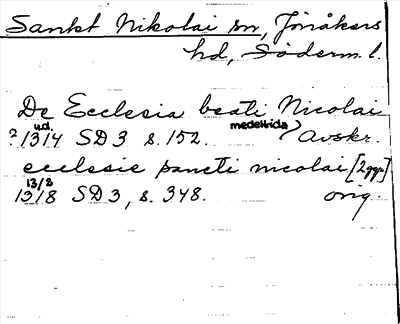 Sankt Nikolai sn, Jönåkers
hd, Söderm. l.
De Ecclesia beati Nicolai
u.d.
?1314 SD 3 s. 152. medeltida Avskr.
ecclesie sancti nicolai [2 ggr]
13/3
1318 SD 3, s. 348. orig.